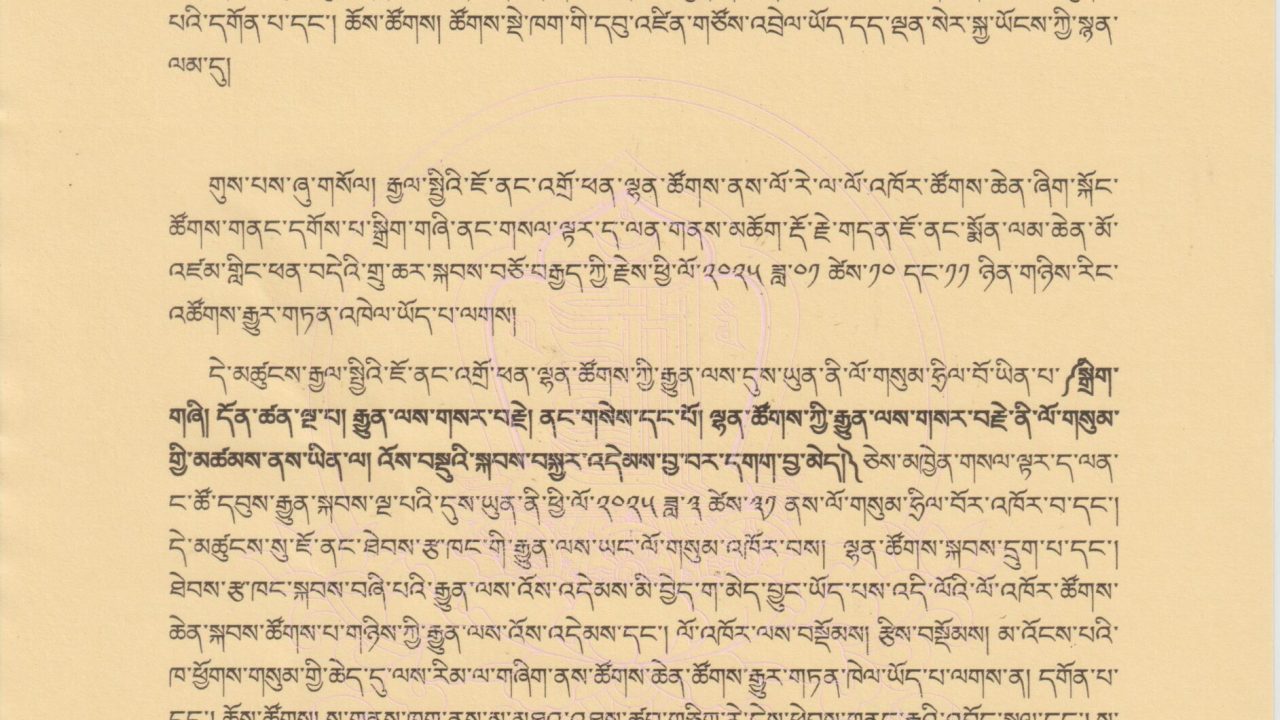 པའི་དགོན་པ་དང་། ཆོས་ཚོགས། ཚོགས་སྡེ་ཁག་གི་དབུ་འཛིན་གཙོས་འབྲེལ་ཡོད་དད་ལྡན་སེར་སྐྱ་ཡོངས་ཀྱི་སྙན་
ལམ་དུ།
གུས་པས་ཞུ་གསོལ། རྒྱལ་སྤྱིའི་ཇོ་ནང་འགྲོ་ཕན་ལྷན་ཚོགས་ནས་ལོ་རེ་ལ་ལོ་འཁོར་ཚོགས་ཆེན་ཞིག་སྐོང་
ཚོགས་གནང་དགོས་པ་སྒྲིག་གཞི་ནང་གསལ་ལྟར་ད་ལན་གནས་མཆོག་རྡོ་རྗེ་གདན་ཇོ་ནང་སྨོན་ལམ་ཆེན་མོ་
འཛམ་གླིང་ཕན་བདེའི་གྲུ་ཆར་སྐབས་བཅོ་བརྒྱད་ཀྱི་རྗེས་ཕྱི་ལོ་༢༠༢༥ ཟླ་༠༡ ཚེས་༡༠ དང་༡༡ ཉིན་གཉིས་རིང་
འཚོགས་རྒྱུར་གཏན་འཁེལ་ཡོད་པ་ལགས།
དེ་མཚུངས་རྒྱལ་སྤྱིའི་ཇོ་ནང་འགྲོ་ཕན་ལྷན་ཚོགས་ཀྱི་རྒྱུན་ལས་དུས་ཡུན་ནི་ལོ་གསུམ་ཧྲིལ་བོ་ཡིན་པ་༼སྒྲིག་
གཞི། དོན་ཚན་ལྔ་པ། རྒྱུན་ལས་གསར་བརྗེ། ནང་གསེས་དང་པོ། ལྷན་ཚོགས་ཀྱི་རྒྱུན་ལས་གསར་བརྗེ་ནི་ལོ་གསུམ་
གྱི་མཚམས་ནས་ཡིན་ལ། འོས་བསྡུའི་སྐབས་བསྐྱར་འདེམས་བྱ་བར་དགག་བྱ་མེད།༽ ཅེས་མཁྱེན་གསལ་ལྟར་ད་ལན་
ང་ཚོ་དབུས་རྒྱུན་སྐབས་ལྔ་པའི་དུས་ཡུན་ནི་ཕྱི་ལོ་༢༠༢༥ ཟླ་༣ ཚེས་༣༡ ནས་ལོ་གསུམ་ཧྲིལ་བོར་འཁོར་བ་དང་།
དེ་མཚུངས་སུ་ཇོ་ནང་ཐེབས་རྩ་ཁང་གི་རྒྱུན་ལས་ཡང་ལོ་གསུམ་འཁོར་བས། ལྷན་ཚོགས་སྐབས་དྲུག་པ་དང་།
ཐེབས་རྩ་ཁང་སྐབས་བཞི་པའི་རྒྱུན་ལས་འོས་འདེམས་མི་བྱེད་ག་མེད་བྱུང་ཡོད་པས་འདི་ལོའི་ལོ་འཁོར་ཚོགས་
ཆེན་སྐབས་ཚོགས་པ་གཉིས་ཀྱི་རྒྱུན་ལས་འོས་འདེམས་དང་། ལོ་འཁོར་ལས་བསྡོམས། རྩིས་བསྡོམས། མ་འོངས་པའི་
ཁ་ཕྱོགས་གསུམ་གྱི་ཆེད་དུ་ལས་རིམ་ལ་གཞིག་ནས་ཚོགས་ཆེན་ཚོགས་རྒྱུར་གཏན་ཁེལ་ཡོད་པ་ལགས་ན། དགོན་པ་